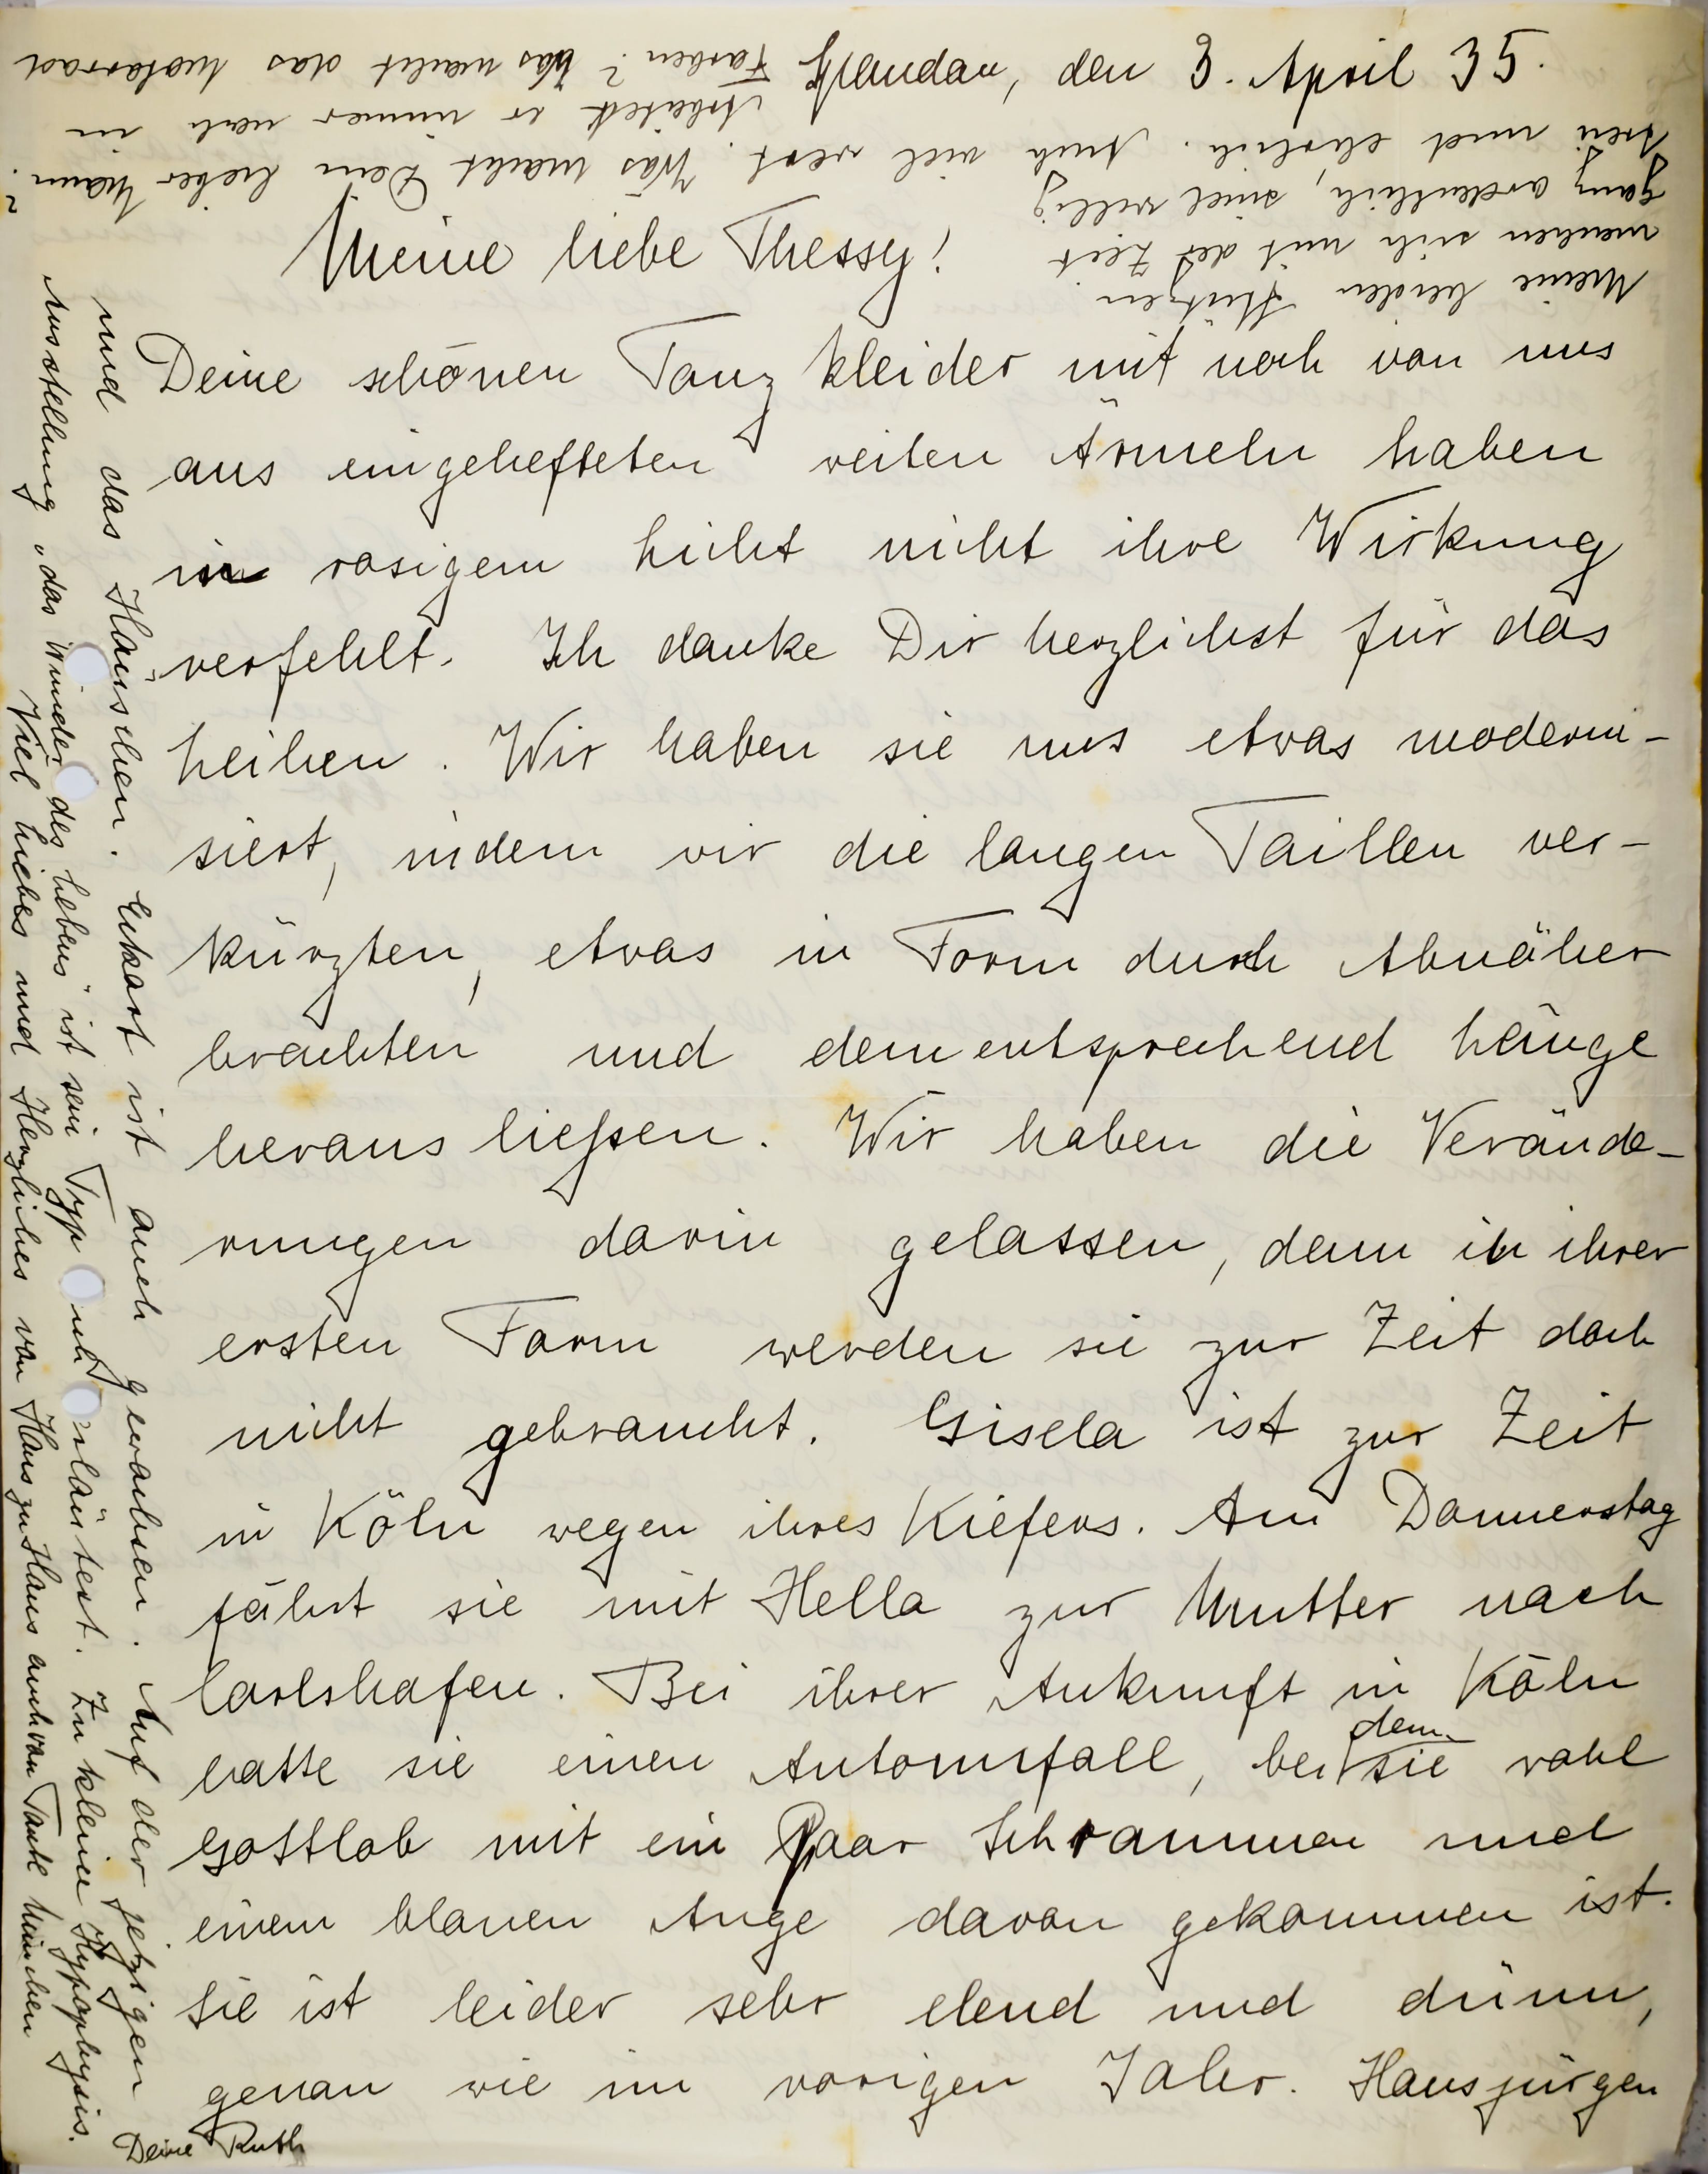 Spandau, den 3. April 35.
Meine liebe Thessy!
Deine schönen Tanzkleider mit noch von uns
aus eingehefteten weiten Ärmeln haben
in rosigem Licht nicht ihre Wirkung
verfehlt. Ich danke Dir herzlichst für das
Leihen. Wir haben sie uns etwas moderni-
siert, indem wir die langen Taillen ver-
kürzten, etwas in Form durch Abnäher
brachten und dementsprechend Länge
heraus ließen. Wir haben die Verände-
rungen darin gelassen, denn in ihrer
ersten Form werden sie zur Zeit doch
nicht gebraucht. Gisela ist zur Zeit
in Köln wegen ihres Kiefers. Am Donnerstag
fährt sie mit Hella zur Mutter nach
Carlshafen. Bei ihrer Ankunft in Köln
hatte sie einen Autounfall, bei dem sie wohl
Gottlob mit ein Paar Schrammen und
einem blauen Auge davon gekommen ist.
Sie ist leider sehr elend und dünn,
genau wie im vorigen Jahr. Hansjürgen
und das Häuschen. Eckart ist auch gewachsen. Auf der jetzigen
Ausstellung „das Wunder des Lebens" ist sein Typ auch erläutert. Zu kleine Hypophysis.
Viel Liebes und Herzliches von Haus zu Haus auch von Tante Lieschen
Deine Ruth
Meine beiden Stützen
machen sich mit der Zeit
ganz ordentlich, sind willig
treu und ehrlich. Auch viel wert. Was macht Dein lieber Mann?
Arbeitet er immer noch in
Farben? Was macht das Motorrad